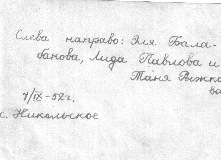 Слева направо: Эля Бала-
банова, Лида Павлова и
Таня Рыжко
ва
7/IX-52 г.
с. Никольское